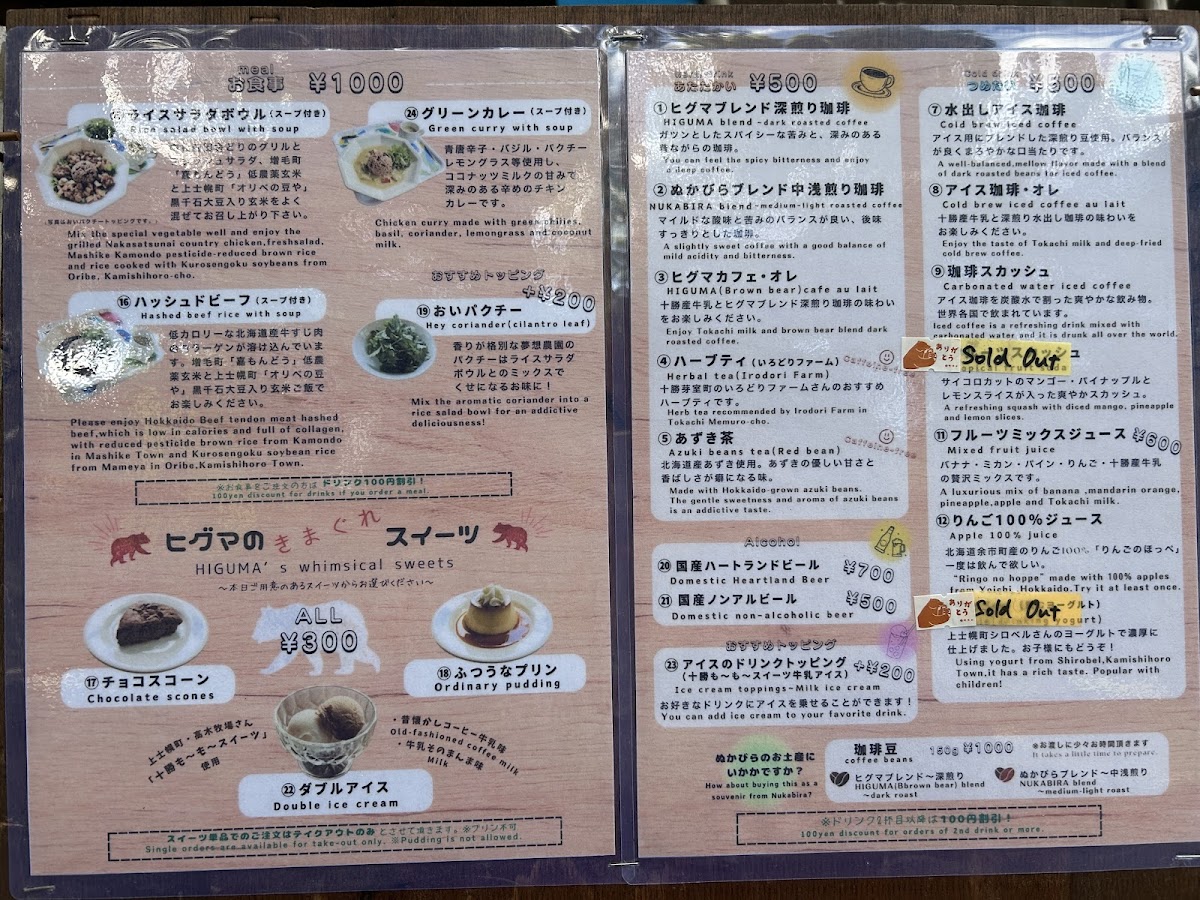 meal
お食事 ¥1000
ライスサラダボウル(スープ付き)
Rice salad bowl with soup
のグリルと
サラダ、増毛町
「嘉もんどう」低農薬玄米
と上士幌町「オリベの豆や」
黒千石大豆入り玄米をよく
混ぜてお召し上がり下さい。
Mix the special vegetable well and enjoy the
grilled Nakasatsunai country chicken,freshsalad,
Mashike Kamondo pesticide-reduced brown rice
and rice cooked with Kurosengoku soybeans from
Oribe, Kamishihoro-cho.
㉔ グリーンカレー(スープ付き)
Green curry with soup
青唐辛子・バジル・パクチー
レモングラス等使用し、
ココナッツミルクの甘みで
深みのある辛めのチキン
カレーです。
Chicken curry made with green chilies,
basil, coriander, lemongrass and coconut
milk.
⑯ ハッシュドビーフ(スープ付き)
Hashed beef rice with soup
低カロリーな北海道産牛すじ肉
のコラーゲンが溶け込んでいま
す。増毛町「嘉もんどう」低農
薬玄米と上士幌町「オリベの豆
や」黒千石大豆入り玄米ご飯で
お楽しみください。
Please enjoy Hokkaido Beef tendon meat hashed
beef,which is low in calories and full of collagen,
with reduced pesticide brown rice from Kamondo
in Mashike Town and Kurosengoku soybean rice
from Mameya in Oribe,Kamishihoro Town.
おすすめトッピング
+¥200
⑲ おいパクチー
Hey coriander(cilantro leaf)
香りが格別な夢想農園の
パクチーはライスサラダ
ボウルとのミックスで
くせになるお味に!
Mix the aromatic coriander into a
rice salad bowl for an addictive
deliciousness!
※お食事をご注文の方は ドリンク100円割引!
100yen discount for drinks if you order a meal.
ヒグマの きまぐれ スイーツ
HIGUMA's whimsical sweets
〜本日ご用意のあるスイーツからお選びください〜
ALL
¥300
⑰ チョコスコーン
Chocolate scones
⑱ ふつうなプリン
Ordinary pudding
上士幌町・高木牧場さん
「十勝も〜も〜スイーツ」
使用
・昔懐かしコーヒー牛乳味
Old-fashioned coffee milk
・牛乳そのまんま味
Milk
㉒ ダブルアイス
Double ice cream
スイーツ単品でのご注文はテイクアウトのみ とさせて頂きます。※プリン不可
Single orders are available for take-out only. ※Pudding is not allowed.
あたたかい ¥500
① ヒグマブレンド深煎り珈琲
HIGUMA blend~dark roasted coffee
ガツンとしたスパイシーな苦みと、深みのある
昔ながらの珈琲。
You can feel the spicy bitterness and enjoy
a deep coffee.
② ぬかびらブレンド中浅煎り珈琲
NUKABIRA blend~medium-light roasted coffee
マイルドな酸味と苦みのバランスが良い、後味
すっきりとした珈琲。
A slightly sweet coffee with a good balance of
mild acidity and bitterness.
③ ヒグマカフェ・オレ
HIGUMA(Brown bear)cafe au lait
十勝産牛乳とヒグマブレンド深煎り珈琲の味わい
をお楽しみください。
Enjoy Tokachi milk and brown bear blend dark
roasted coffee.
④ ハーブティ(いろどりファーム)
Herbal tea(Irodori Farm)
十勝芽室町のいろどりファームさんのおすすめ
ハーブティです。
Herb tea recommended by Irodori Farm in
Tokachi Memuro-cho.
⑤ あずき茶
Caffeine-free
Azuki beans tea(Red bean)
北海道産あずき使用。あずきの優しい甘さと
香ばしさが癖になる味。
Made with Hokkaido-grown azuki beans.
The gentle sweetness and aroma of azuki beans
is an addictive taste.
Alcohol
⑳ 国産ハートランドビール ¥700
Domestic Heartland Beer
㉑ 国産ノンアルビール ¥500
Domestic non-alcoholic beer
おすすめトッピング
㉓ アイスのドリンクトッピング +¥200
(十勝も〜も〜スイーツ牛乳アイス)
Ice cream toppings~Milk ice cream
お好きなドリンクにアイスを乗せることができます!
You can add ice cream to your favorite drink.
つめたい
⑦ 水出しアイス珈琲
Cold brew iced coffee
アイス用にブレンドした深煎り豆使用。バランス
が良くまろやかな口当たりです。
A well-balanced,mellow flavor made with a blend
of dark roasted beans for iced coffee.
⑧ アイス珈琲・オレ
Cold brew iced coffee au lait
十勝産牛乳と深煎り水出し珈琲の味わいを
お楽しみください。
Enjoy the taste of Tokachi milk and deep-fried
cold brew coffee.
⑨ 珈琲スカッシュ
Carbonated water iced coffee
アイス珈琲を炭酸水で割った爽やかな飲み物。
世界各国で飲まれています。
Iced coffee is a refreshing drink mixed with
carbonated water and it is drunk all over the world.
ありがとう Sold Out
サイコロカットのマンゴー・パイナップルと
レモンスライスが入った爽やかスカッシュ。
A refreshing squash with diced mango, pineapple
and lemon slices.
⑪ フルーツミックスジュース ¥600
Mixed fruit juice
バナナ・ミカン・パイン・りんご・十勝産牛乳
の贅沢ミックスです。
A luxurious mix of banana ,mandarin orange,
pineapple,apple and Tokachi milk.
⑫ りんご100%ジュース
Apple 100% juice
北海道余市町産のりんご100%「りんごのほっぺ」
一度は飲んで欲しい。
"Ringo no hoppe" made with 100% apples
from Yoichi, Hokkaido.Try it at least once.
ありがとう Sold Out
上士幌町シロベルさんのヨーグルトで濃厚に
仕上げました。お子様にもどうぞ!
Using yogurt from Shirobel,Kamishihoro
Town,it has a rich taste. Popular with
children!
ぬかびらのお土産に
いかかですか?
How about buying this as a
souvenir from Nukabira?
珈琲豆 150g ¥1000
coffee beans
※お渡しに少々お時間頂きます
It takes a little time to prepare.
ヒグマブレンド〜深煎り
HIGUMA(Bbrown bear) blend
~dark roast
ぬかびらブレンド〜中浅煎り
NUKABIRA blend
~medium-light roast
※ドリンク2杯目以降は100円割引!
100yen discount for orders of 2nd drink or more.